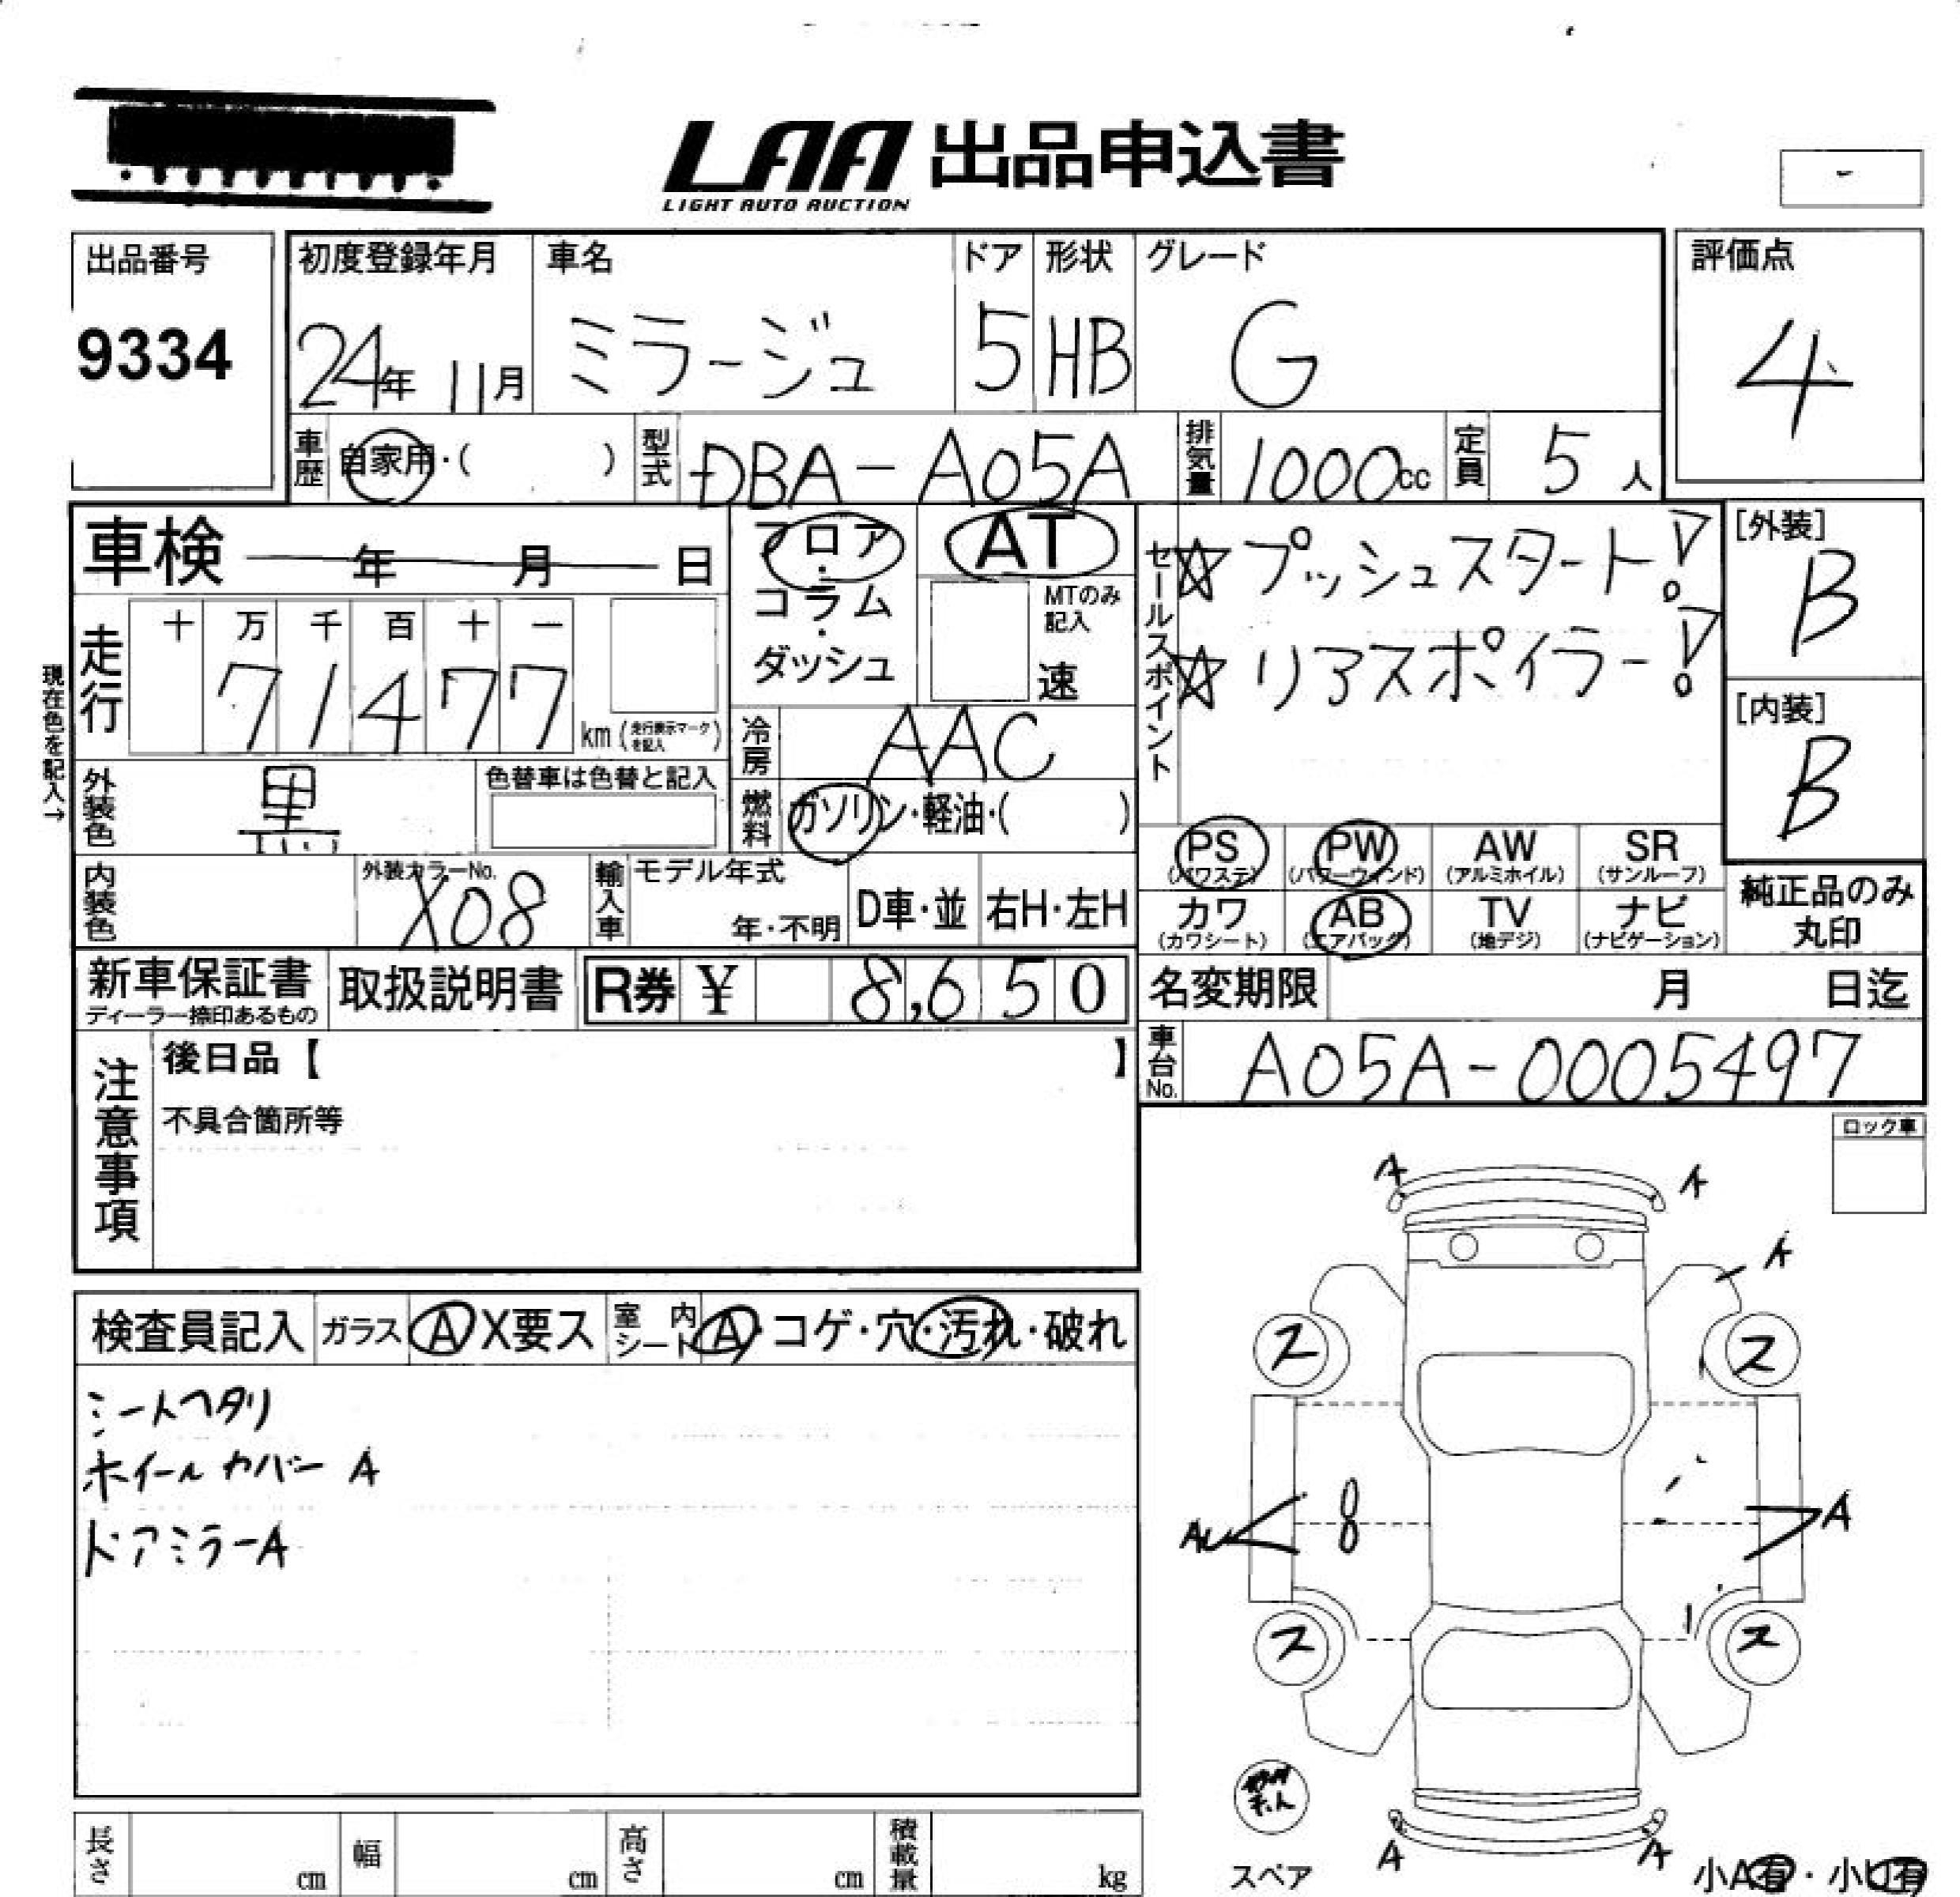 LAA 出品申込書
LIGHT AUTO AUCTION
出品番号
9334
初度登録年月 車名 ドア 形状 グレード
24年 11月 ミラージュ 5 HB G
評価点
4
車歴 自家用・( ) 型式 DBA-A05A 排気量 1000cc 定員 5人
車検 年 月 日
フロア・コラム・ダッシュ
AT
MTのみ記入
速
セールスポイント
☆プッシュスタート!
☆リアスポイラー!
[外装]
B
[内装]
B
現在色を記入→
走行 十 万 千 百 十 一
71477 km (走行表示マークを記入)
冷房 AAC
外装色 黒 色替車は色替と記入
燃料 ガソリン・軽油・( )
内装色 外装カラーNo. X08
輸入車 モデル年式 年・不明 D車・並 右H・左H
PS (パワステ) PW (パワーウィンド) AW (アルミホイル) SR (サンルーフ)
カワ (カワシート) AB (エアバッグ) TV (地デジ) ナビ (ナビゲーション)
純正品のみ丸印
新車保証書 ディーラー捺印あるもの 取扱説明書 R券 ¥ 8,650
名変期限 月 日迄
車台No. A05A-0005497
注意事項
後日品【 】
不具合箇所等
ロック車
検査員記入 ガラス A X要ス 室内シート A・コゲ・穴・汚れ・破れ
シートヘタリ
ホイールカバー A
ドアミラーA
A A
A
ス ス
AU 8 A
ス ス
A A
スペア 小A有・小U有
長さ cm 幅 cm 高さ cm 積載量 kg